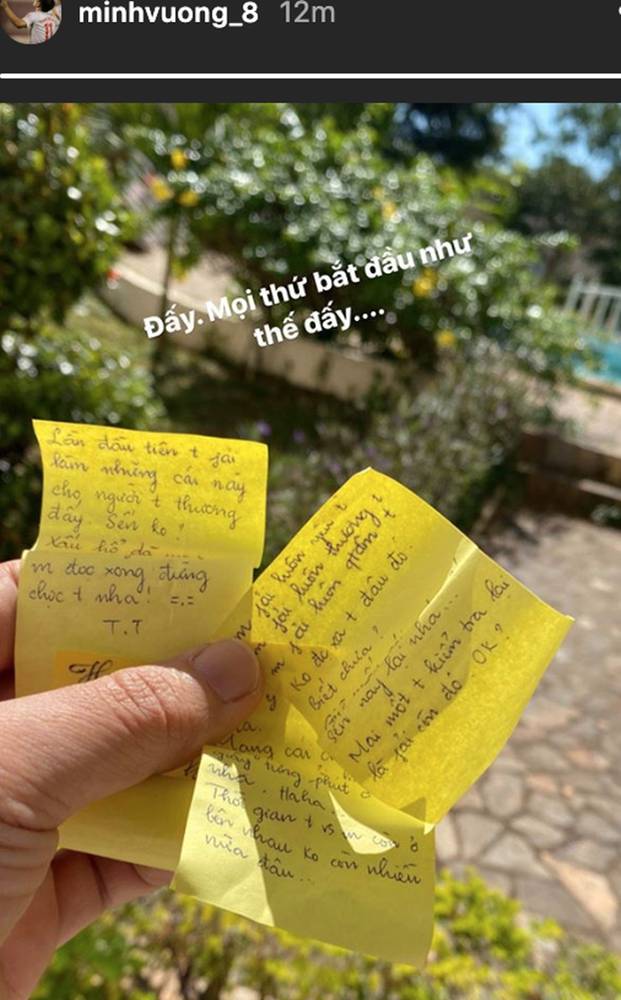 minhvuong_8 12m
Đấy. Mọi thứ bắt đầu như
thế đấy....
Lần đầu tiên t fải
làm những cái này
cho người t thương
đấy. Sến ko?
Xấu hổ dã .....
m đọc xong đừng
chọc t nha! =.=
T.T
m fải luôn yêu t
m fải luôn thương t
m fải luôn quan t
Ko đc xa t đâu đó!
Biết chưa?
sến này lại nha...
Mai mốt t kiểm tra lại
là fải còn đó OK?
Mang
từng phút
nha. Haha
Thời gian t vs m còn ở
bên nhau ko còn nhiều
nữa đâu...